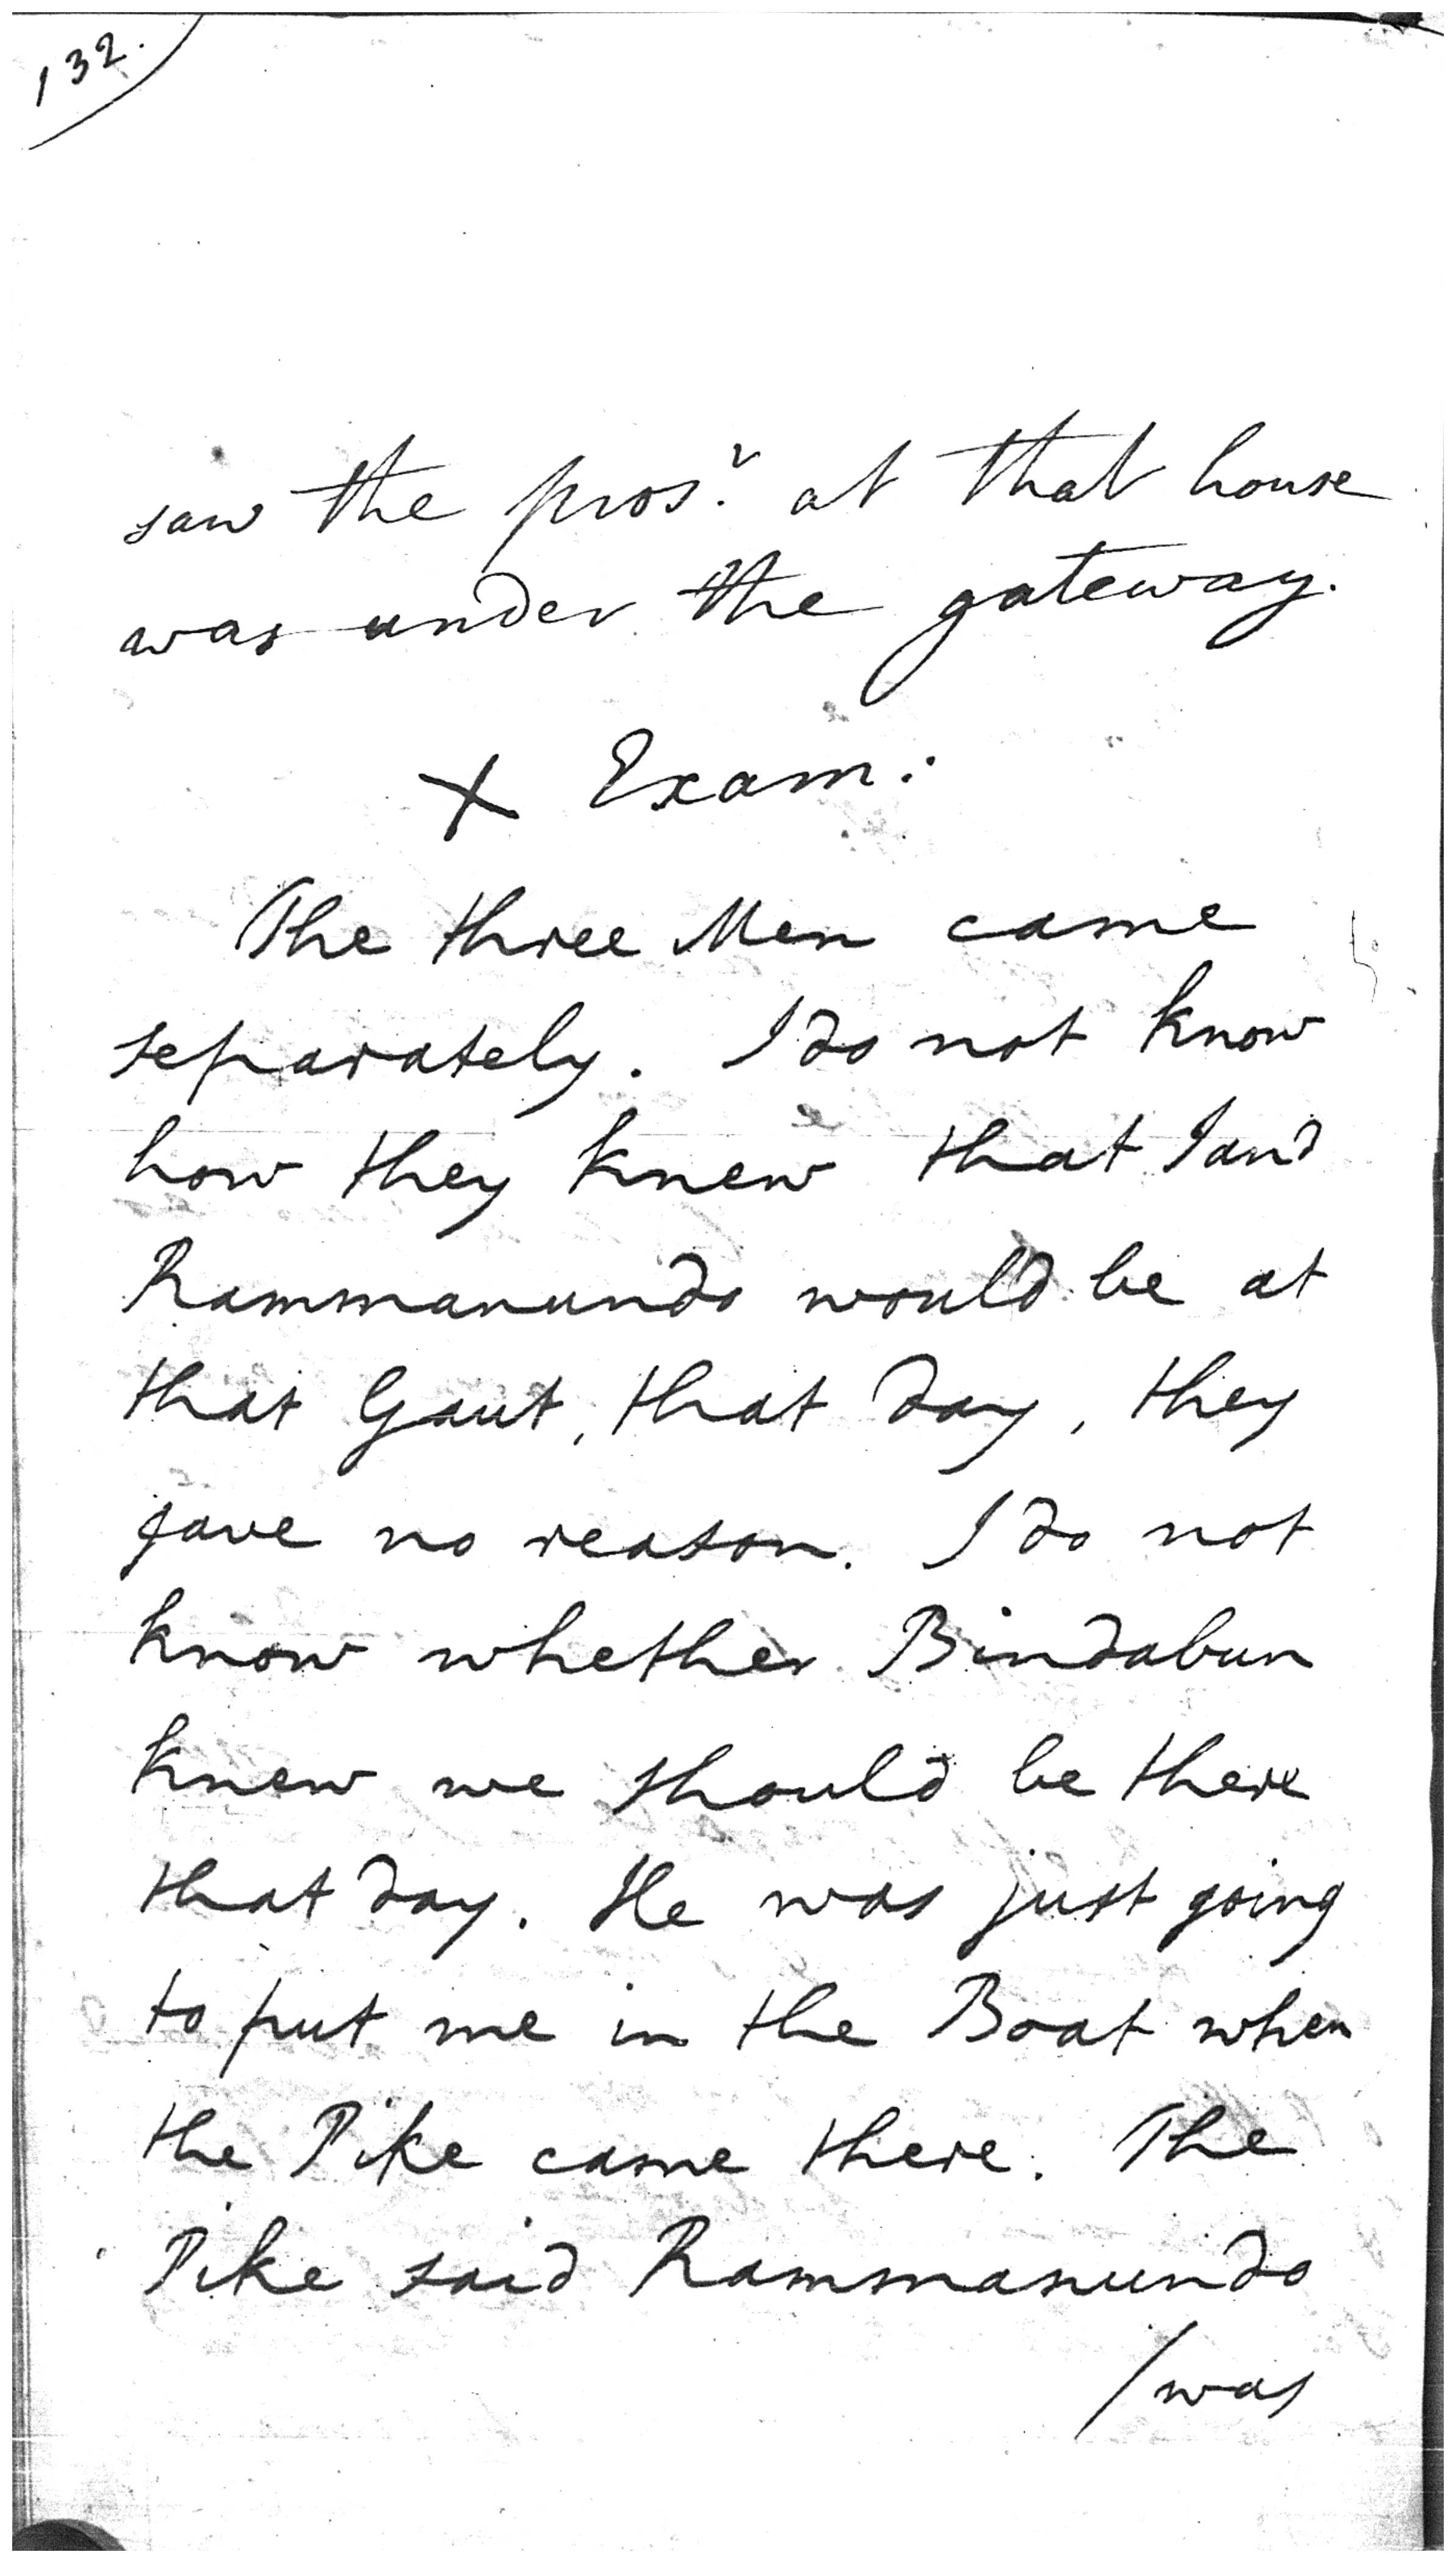 132.
saw the pros.r at that house
was under the gateway.
X Exam:
The three Men came
separately. I do not know
how they knew that I and
Rammanundo would be at
that Gaut, that day, they
gave no reason. I do not
know whether Bindabun
knew we should be there
that day. He was just going
to put me in the Boat when
the Pike came there. The
Pike said Rammanundo
/was